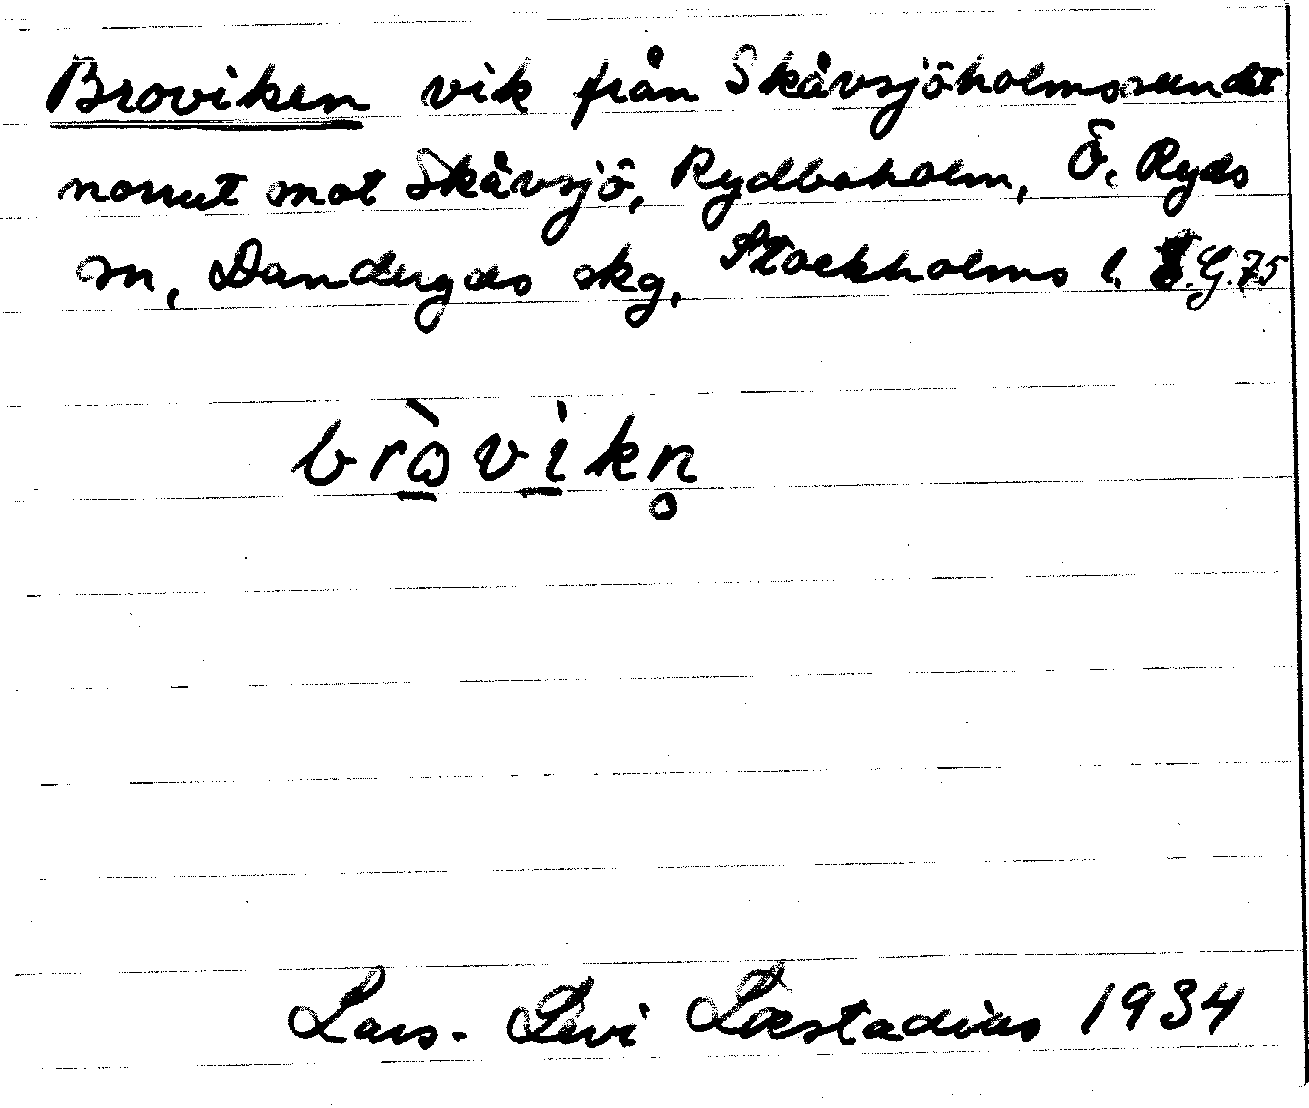 Broviken vik från Skåvsjöholmssundet
norrut mot Skåvsjö, Rydboholm, Ö. Ryds
sn, Danderyds skg, Stockholms l. G.75
bròvìkn̥
Lars-Levi Læstadius 1934